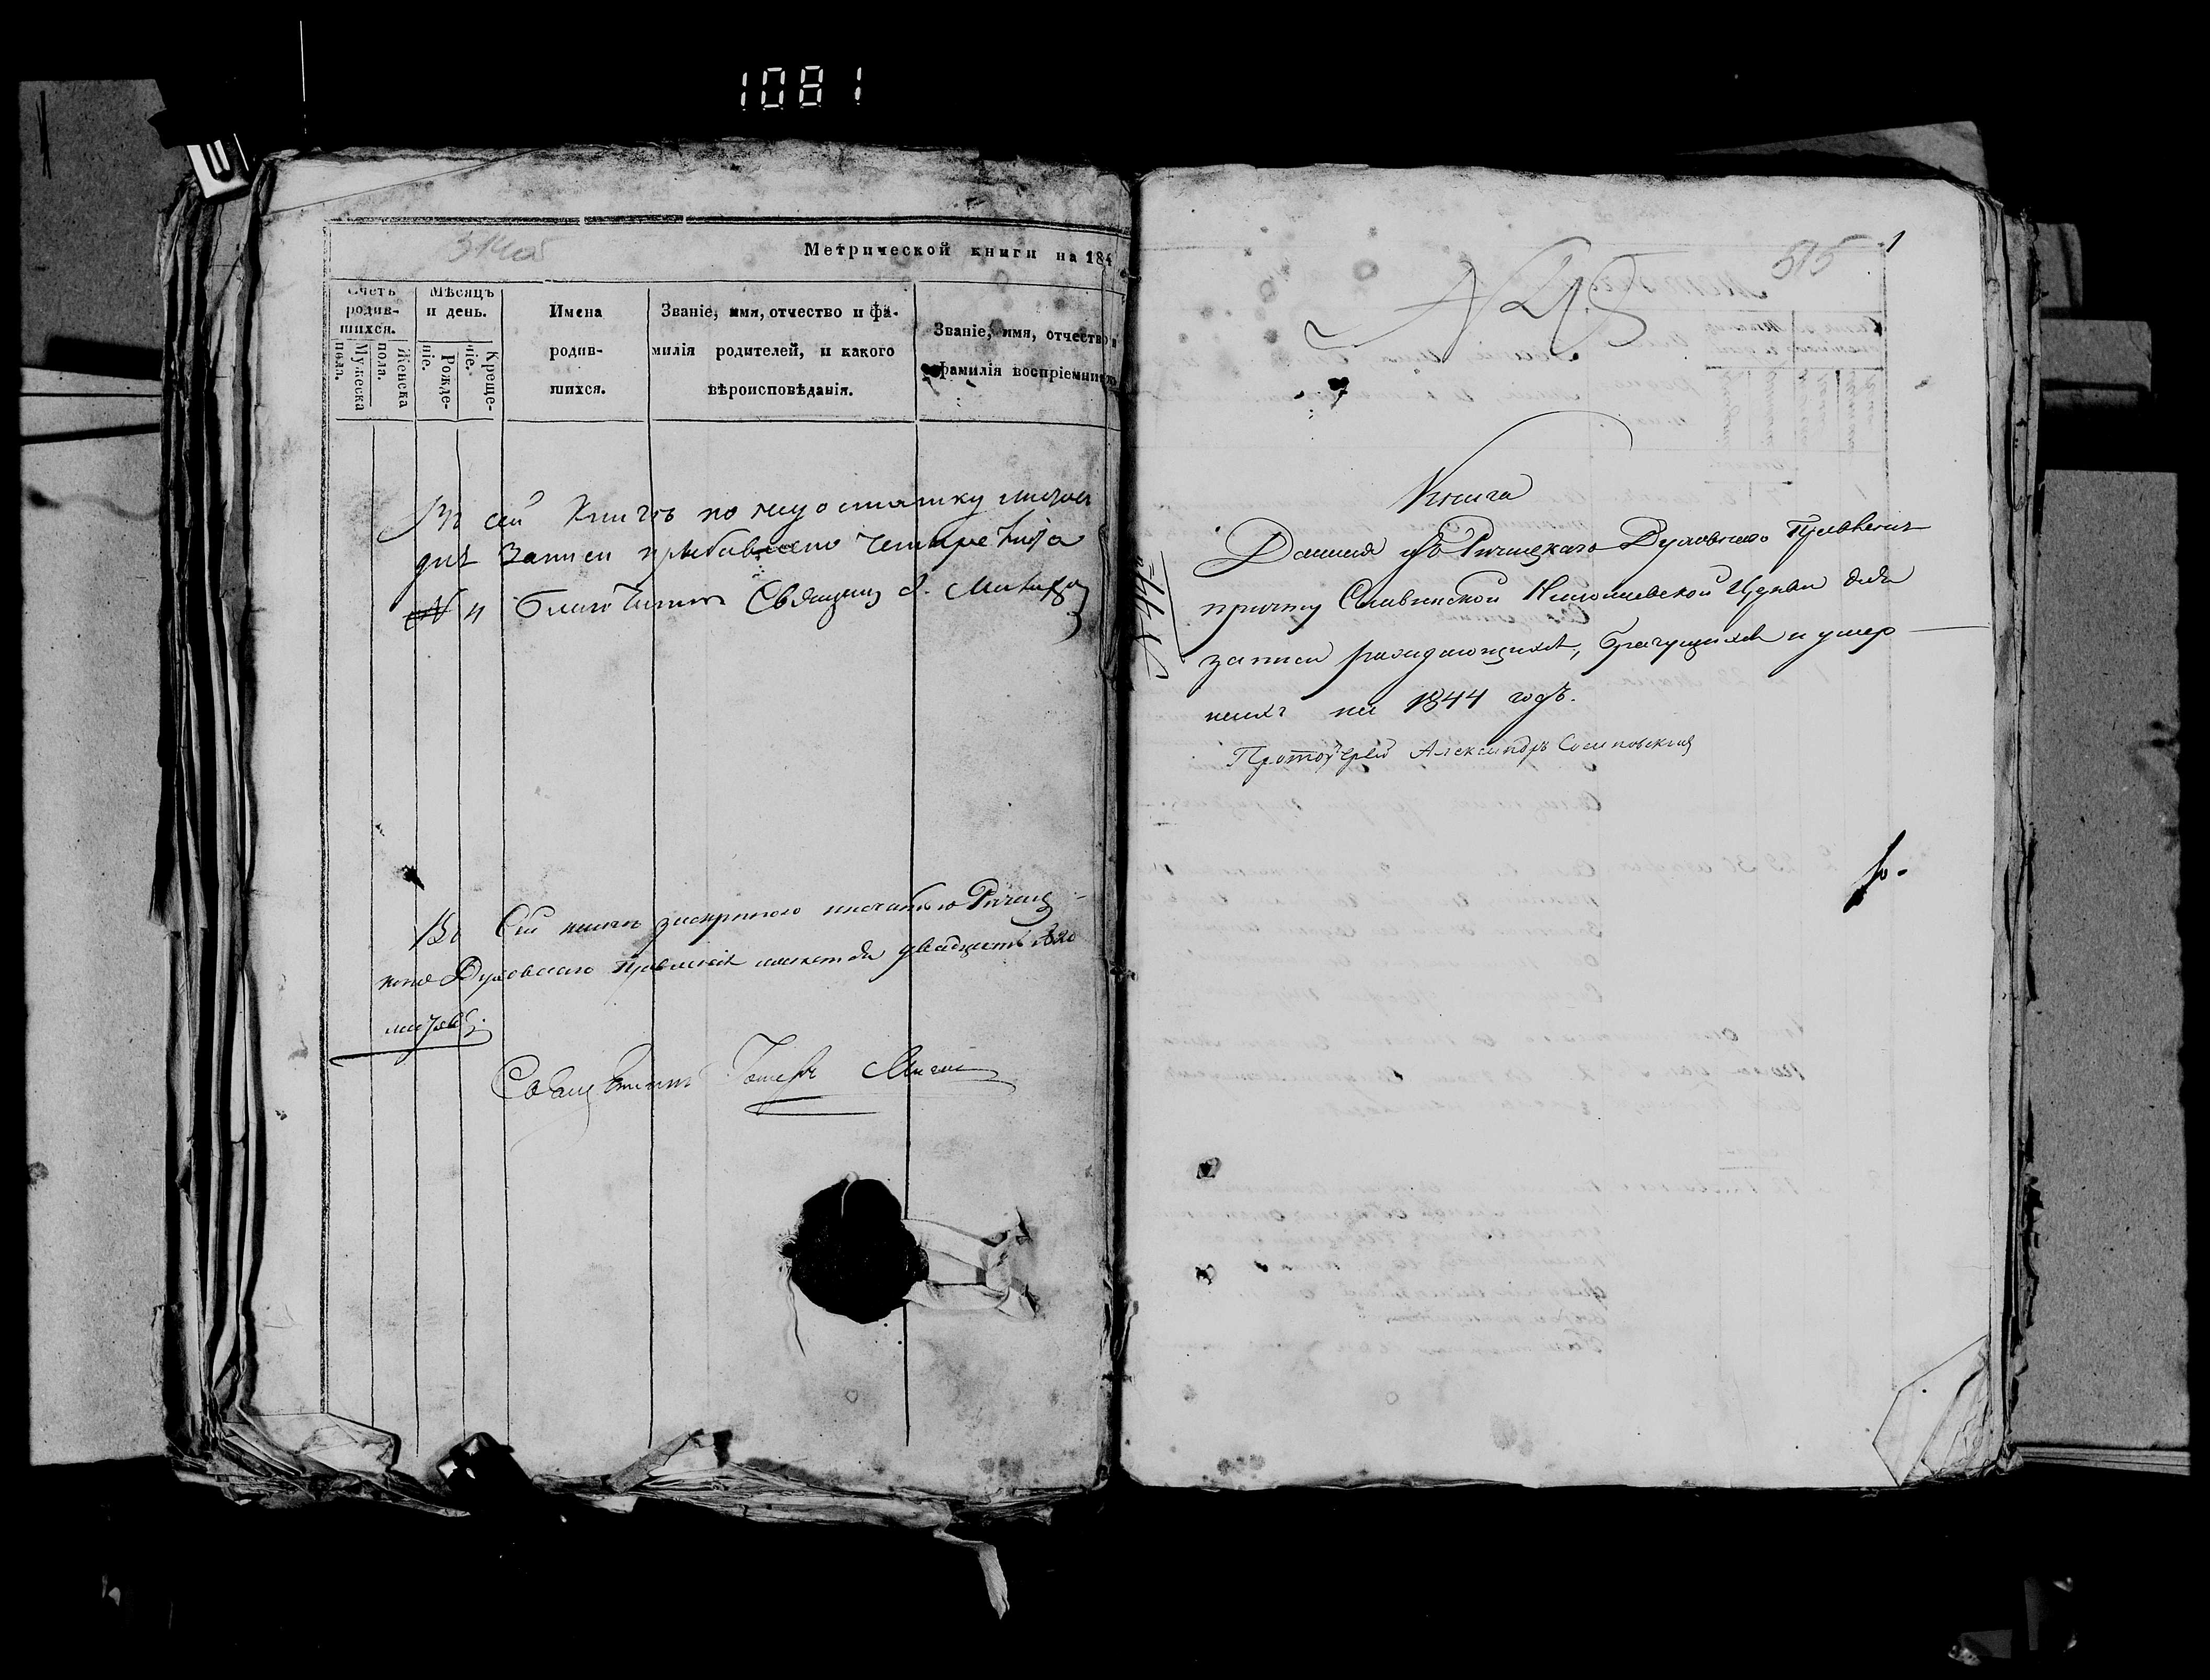 1081
314об
Метрической книги на 184
Счетъ родив-шихся.
Мѣсяцъ и день.
Имена родив-шихся.
Званіе, имя, отчество и фа-
милія родителей, и какого
вѣроисповѣданія.
Званіе, имя, отчество и
фамилія воспріемник
Мужеска пола.
Женска пола.
Рожде-ніе.
Креще-ніе.
Къ сей Книгѣ по недостатку листовъ
для записи прибавлено четыре листа
Благочинный Священ
Въ сей книгѣ за скрепою и печатью Речиц
каго Духовнаго Правленія имеется двадцать
листовъ.
Священникъ
315 1
Книга
Данная изъ Речицкаго Духовнаго Правленія
причту Николаевской Церкви для
записи рождающихся, брачущихся и умер
шихъ на 1844 годъ.
Протоіерей Александръ